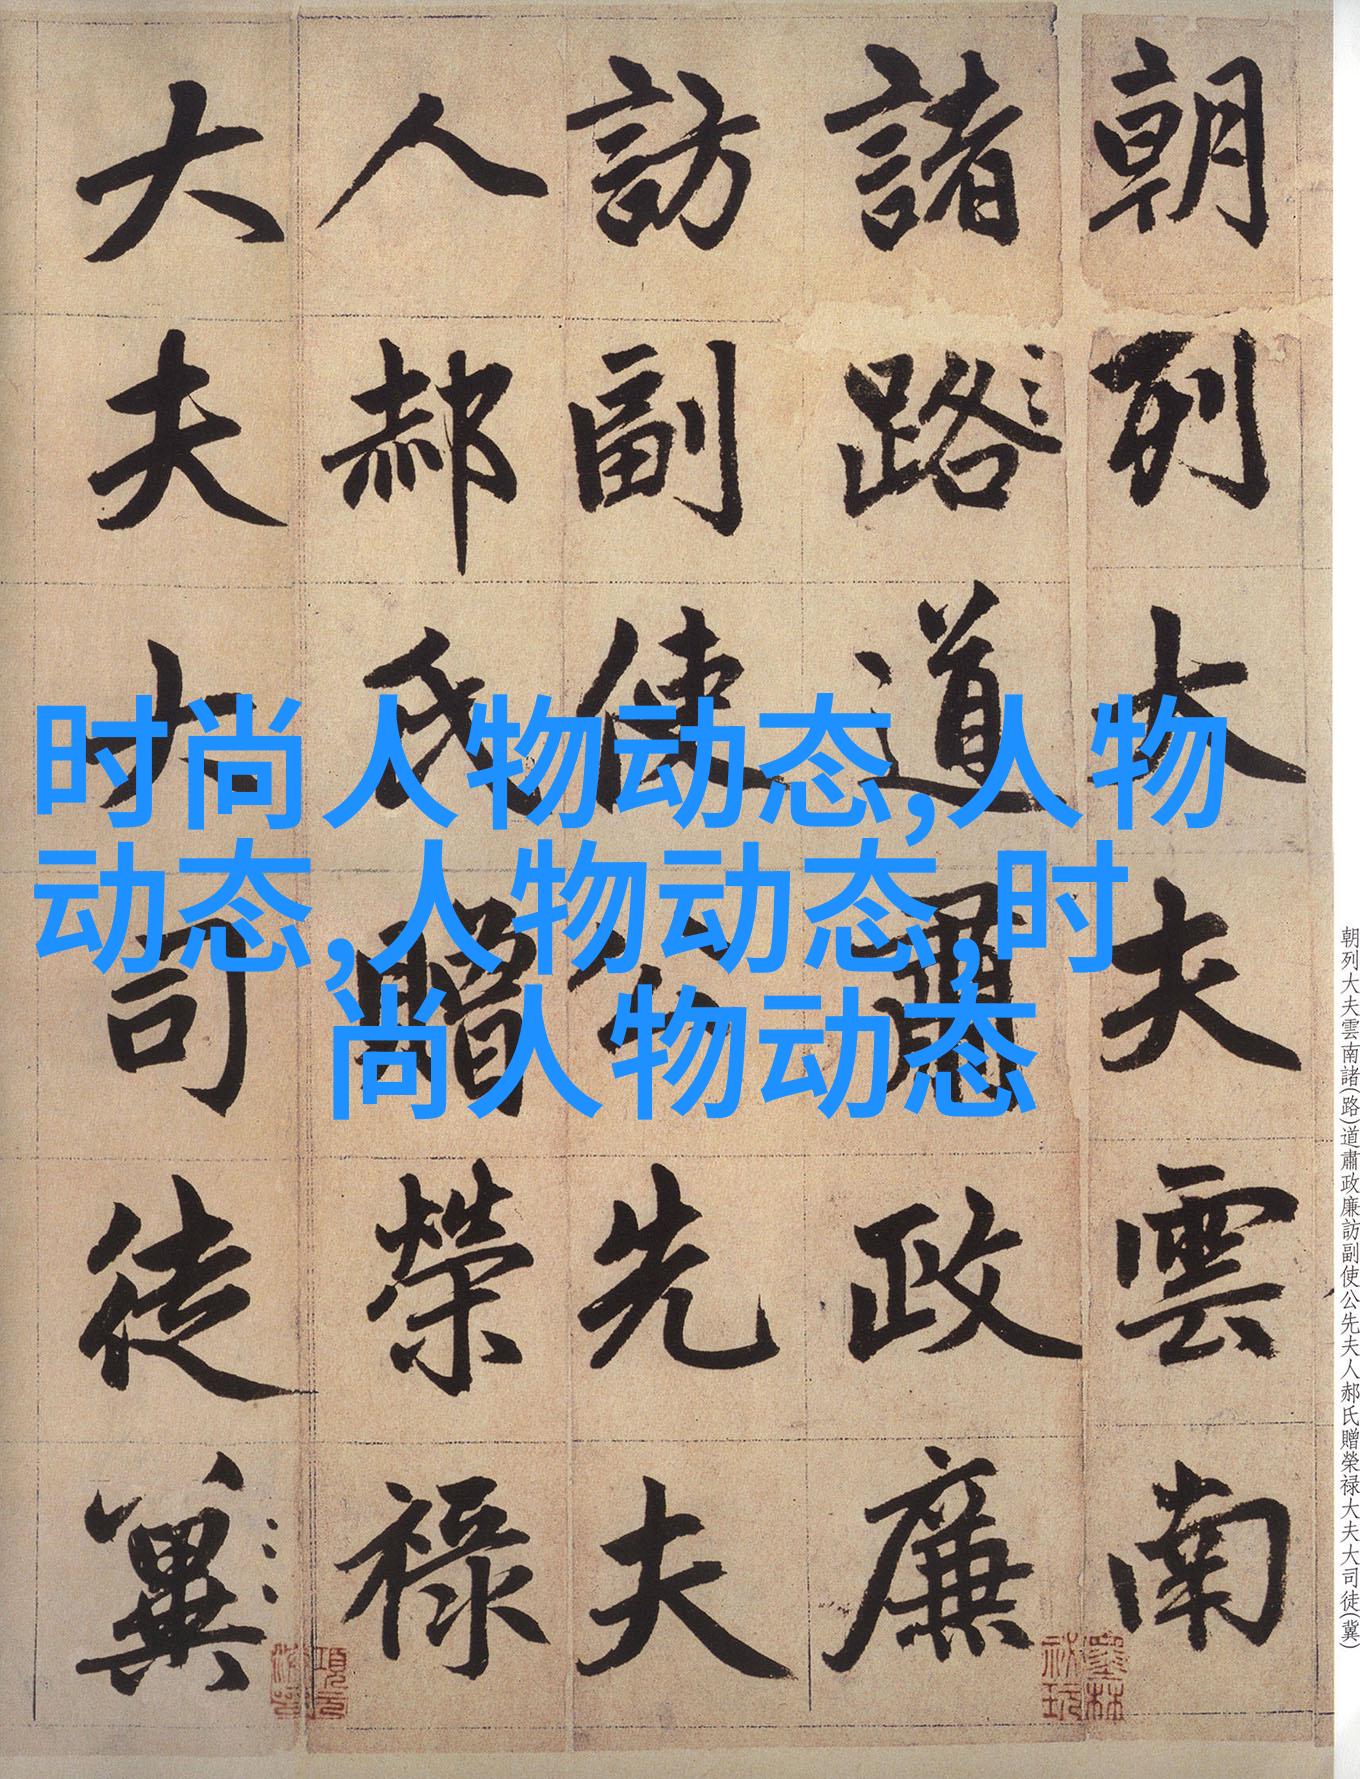 朝列大夫雲南
諸路道肅政廉
訪副使公先夫
人郝氏贈榮禄
大夫大司徒冀
时尚人物动态,人物
动态,人物动态,时
尚人物动态
朝列大夫雲南諸(路)道肅政廉訪副使公先夫人郝氏贈榮禄大夫大司徒(冀)